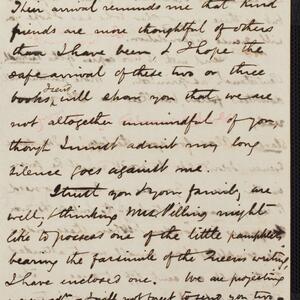 Their arrival reminds me that kind
friends are more thoughtful of others
than I have been, & I hope the
safe arrival of these two or three
books, will show you that we are
not altogether unmindful of you,
though I must admit my long
silence goes against me.
I trust you & your family, are
well, & thinking Mrs Pilling might
like to possess one of the little pamphlets
bearing the facsimile of the Queens writing,
I have enclosed one. We are projecting
will not forget to send you two